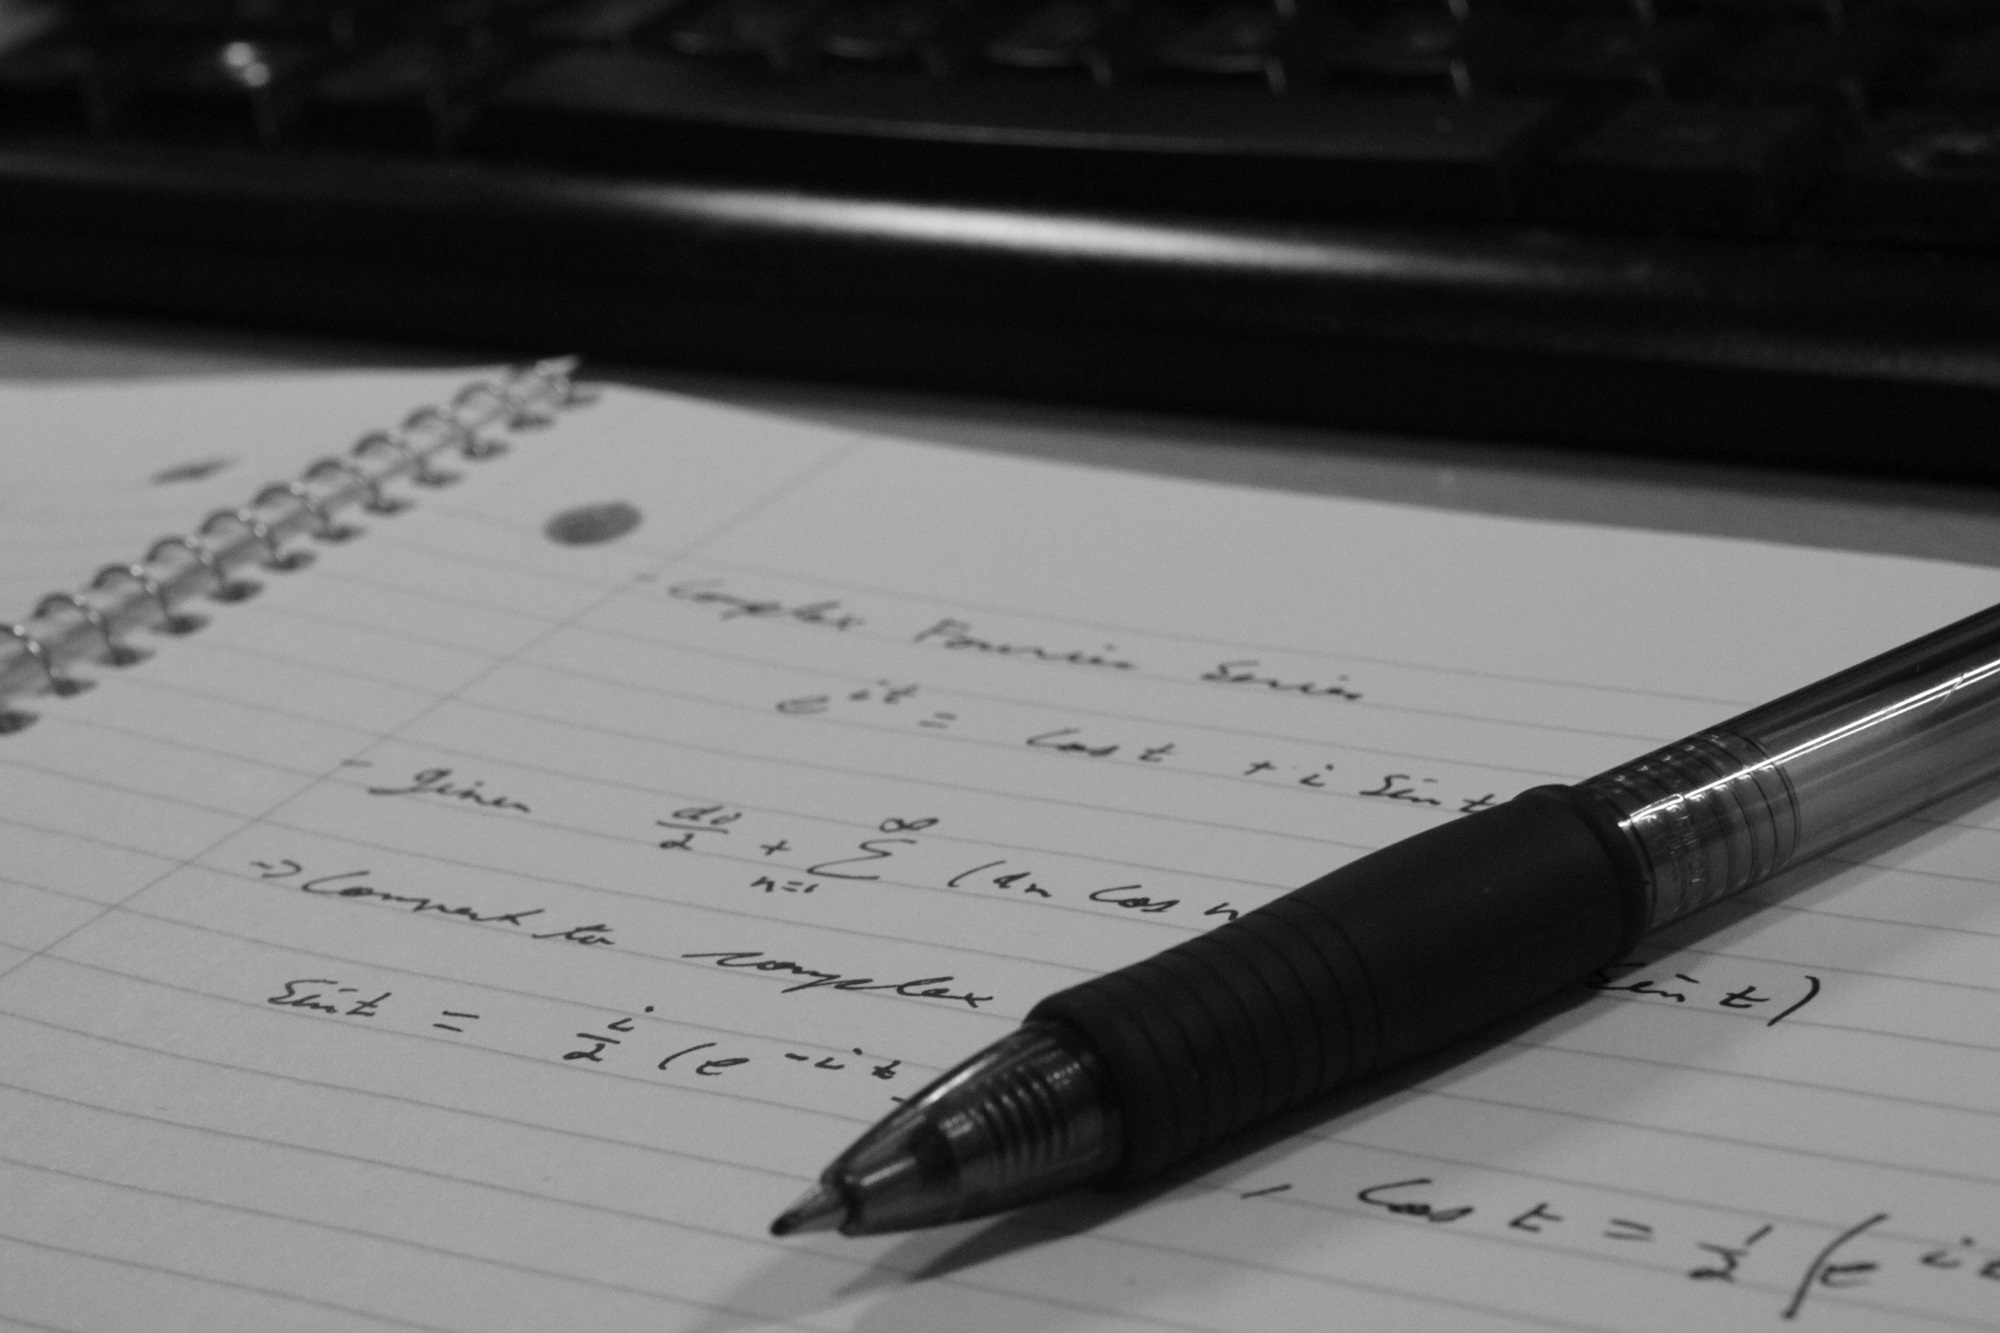 - Complex Fourier Series
e^it = Cos t + i Sin t
- given a0/2 + ∞ Σ n=1 (an Cos n
Sin t)
-> Convert to complex
Sin t = i/2 (e^-it -
, Cos t = 1/2 (e^it